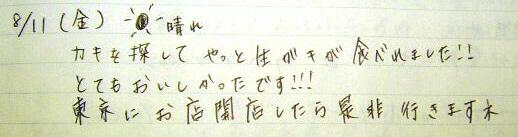 8/11 (金) 晴れ
カキを探して やっと生ガキが食べれました!!
とてもおいしかったです!!!
東京にお店開店したら是非行きます